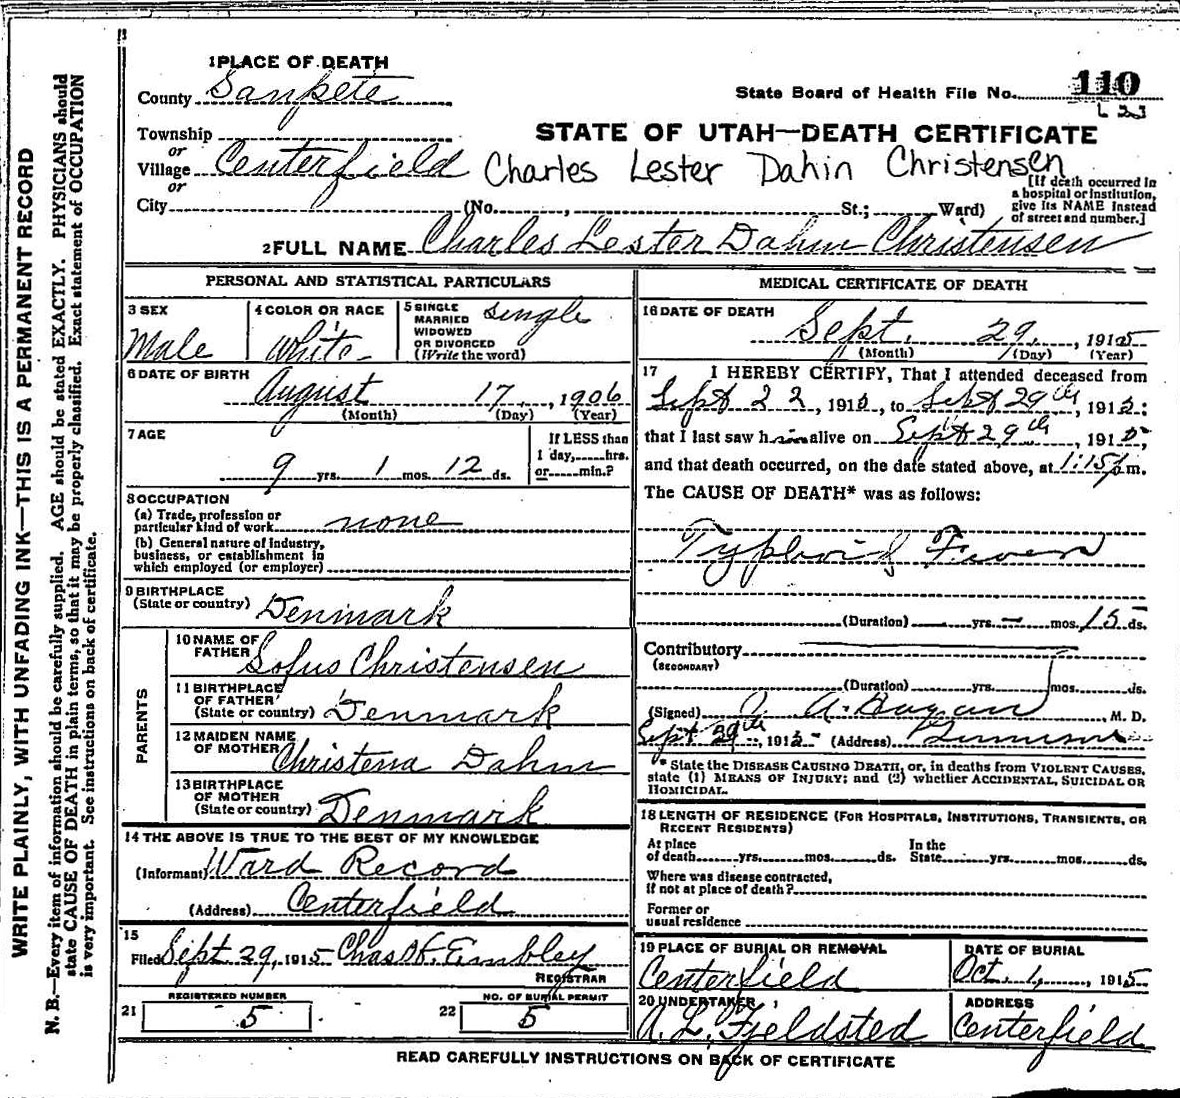 WRITE PLAINLY, WITH UNFADING INK—THIS IS A PERMANENT RECORD
N. B.—Every item of information should be carefully supplied. AGE should be stated EXACTLY. PHYSICIANS should
state CAUSE OF DEATH in plain terms, so that it may be properly classified. Exact statement of OCCUPATION
is very important. See instructions on back of certificate.
1 PLACE OF DEATH
County Sanpete
State Board of Health File No. 110
Township
or
STATE OF UTAH—DEATH CERTIFICATE
Village Centerfield
Charles Lester Dahin Christensen
or
City (No. , St.; Ward)
[If death occurred in
a hospital or institution,
give its NAME instead
of street and number.]
2 FULL NAME Charles Lester Dahm Christensen
PERSONAL AND STATISTICAL PARTICULARS
3 SEX
Male
4 COLOR OR RACE
White
5 SINGLE
MARRIED
WIDOWED
OR DIVORCED
(Write the word)
single
6 DATE OF BIRTH
August 17, 1906
(Month) (Day) (Year)
7 AGE
9 yrs. 1 mos. 12 ds.
If LESS than
1 day, hrs.
or min.?
8 OCCUPATION
(a) Trade, profession or
particular kind of work none
(b) General nature of industry,
business, or establishment in
which employed (or employer)
9 BIRTHPLACE
(State or country) Denmark
PARENTS
10 NAME OF
FATHER Sofus Christensen
11 BIRTHPLACE
OF FATHER
(State or country) Denmark
12 MAIDEN NAME
OF MOTHER Christena Dahm
13 BIRTHPLACE
OF MOTHER
(State or country) Denmark
14 THE ABOVE IS TRUE TO THE BEST OF MY KNOWLEDGE
(Informant) Ward Record
(Address) Centerfield
15
Filed Sept. 29, 1915 Chas Embley
REGISTRAR
21 REGISTERED NUMBER
5
22 NO. OF BURIAL PERMIT
5
MEDICAL CERTIFICATE OF DEATH
16 DATE OF DEATH
Sept. 29, 1915
(Month) (Day) (Year)
17 I HEREBY CERTIFY, That I attended deceased from
Sept 22, 1915, to Sept 29th, 1915;
that I last saw him alive on Sept 29th, 1915,
and that death occurred, on the date stated above, at 1:15 p m.
The CAUSE OF DEATH* was as follows:
Typhoid Fever
(Duration) yrs. mos. 15 ds.
Contributory
(SECONDARY)
(Duration) yrs. mos. ds.
(Signed) A. Hagan, M. D.
Sept 29th, 1915 (Address) Gunnison
* State the DISEASE CAUSING DEATH, or, in deaths from VIOLENT CAUSES,
state (1) MEANS OF INJURY; and (2) whether ACCIDENTAL, SUICIDAL OR
HOMICIDAL.
18 LENGTH OF RESIDENCE (FOR HOSPITALS, INSTITUTIONS, TRANSIENTS, OR
RECENT RESIDENTS)
At place
of death yrs. mos. ds.
In the
State yrs. mos. ds.
Where was disease contracted,
if not at place of death?
Former or
usual residence
19 PLACE OF BURIAL OR REMOVAL
Centerfield
DATE OF BURIAL
Oct. 1, 1915
20 UNDERTAKER
A. L. Fjeldsted
ADDRESS
Centerfield
READ CAREFULLY INSTRUCTIONS ON BACK OF CERTIFICATE